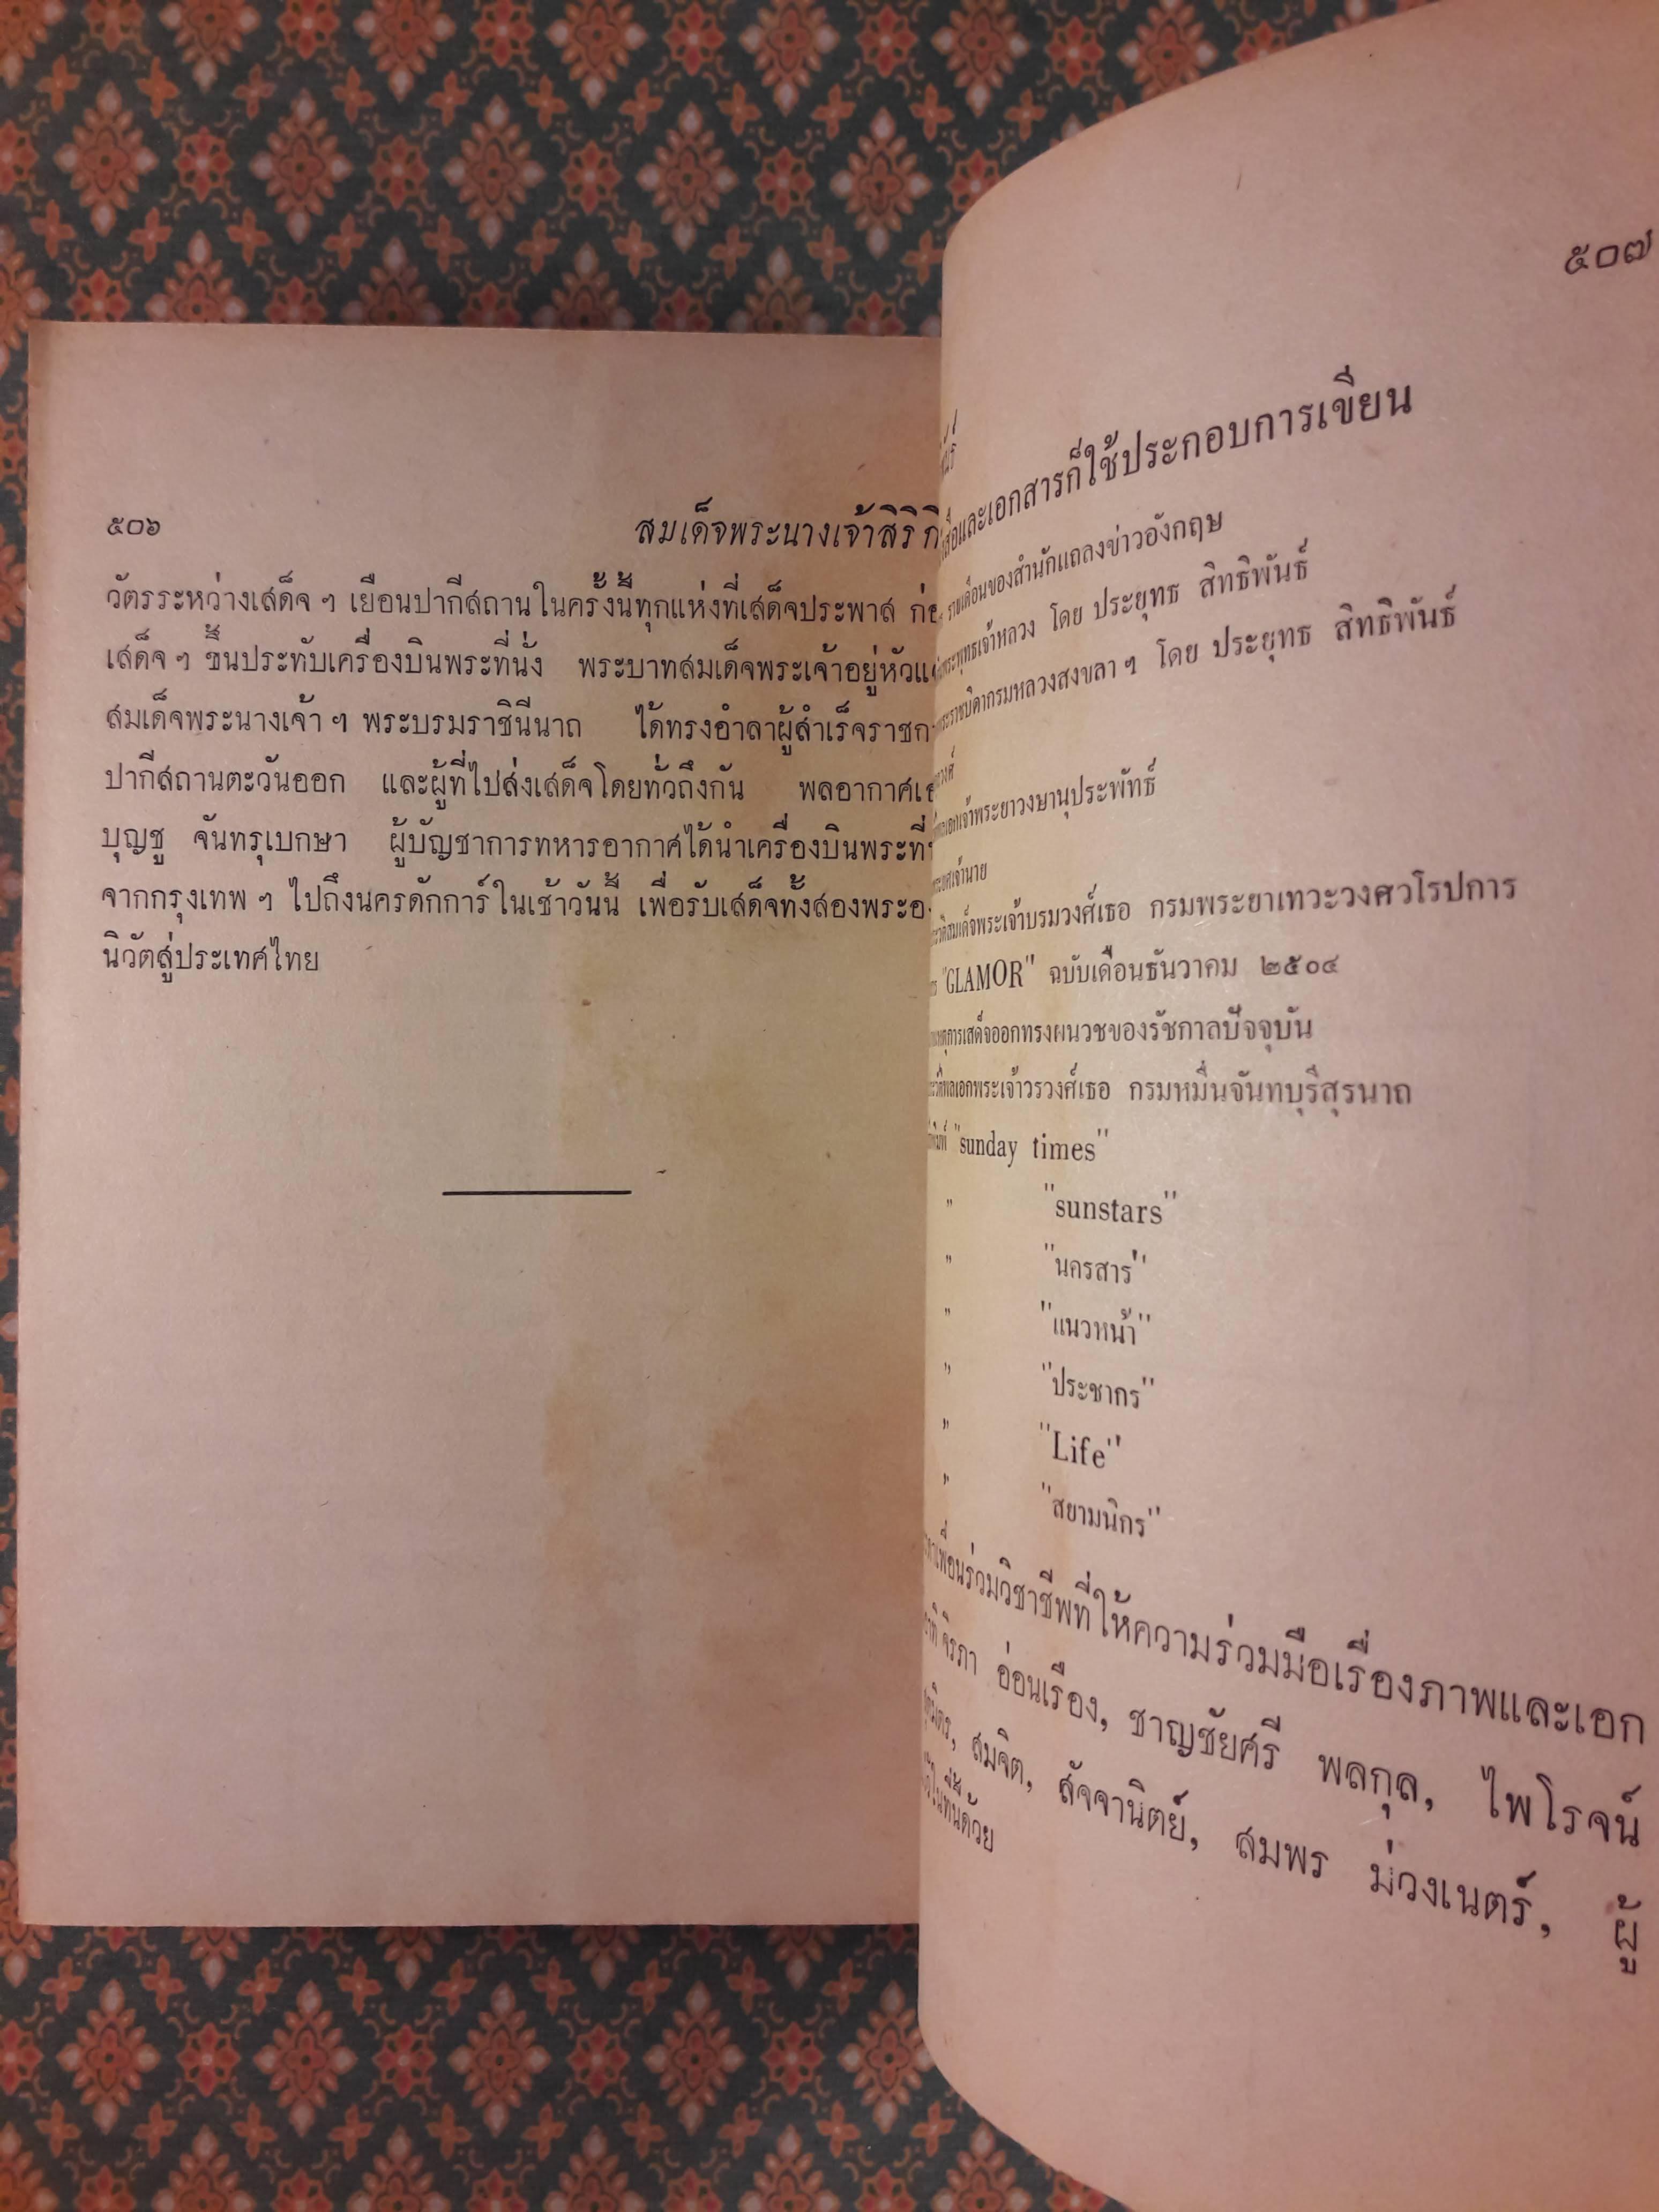 ๕๐๖
สมเด็จพระนางเจ้าสิริกิ
วัตรระหว่างเสด็จ ๆ เยือนปากีสถานในครั้งนี้ทุกแห่งที่เสด็จประพาส ก่อ
เสด็จ ๆ ขึ้นประทับเครื่องบินพระที่นั่ง พระบาทสมเด็จพระเจ้าอยู่หัวแ
สมเด็จพระนางเจ้า ๆ พระบรมราชินีนาถ ได้ทรงอำลาผู้สำเร็จราชก
ปากีสถานตะวันออก และผู้ที่ไปส่งเสด็จโดยทั่วถึงกัน พลอากาศเ
บุญชู จันทรุเบกษา ผู้บัญชาการทหารอากาศได้นำเครื่องบินพระที่
จากกรุงเทพ ๆ ไปถึงนครดักการ์ในเช้าวันนี้ เพื่อรับเสด็จทั้งสองพระอ
นิวัตสู่ประเทศไทย
๕๐๗
และเอกสารก็ใช้ประกอบการเขียน
รายเดือนของสำนักแถลงข่าวอังกฤษ
พระพุทธเจ้าหลวง โดย ประยุทธ สิทธิพันธ์
พระราชบิดากรมหลวงสงขลา ๆ โดย ประยุทธ สิทธิพันธ์
เจ้าพระยาวงษานุประพัทธ์
เจ้านาย
สมเด็จพระเจ้าบรมวงศ์เธอ กรมพระยาเทวะวงศวโรปการ
"GLAMOR" ฉบับเดือนธันวาคม ๒๕๐๔
การเสด็จออกทรงผนวชของรัชกาลปัจจุบัน
พลเอกพระเจ้าวรวงศ์เธอ กรมหมื่นจันทบุรีสุรนาถ
"sunday times"
" "sunstars"
" "นครสาร"
" "แนวหน้า"
" "ประชากร"
" "Life"
" "สยามนิกร"
เพื่อนร่วมวิชาชีพที่ให้ความร่วมมือเรื่องภาพและเอก
จิรภา อ่อนเรือง, ชาญชัยศรี พลกุล, ไพโรจน์
สมจิต, สัจจานิตย์, สมพร ม่วงเนตร์, ผู้
ในที่นี้ด้วย